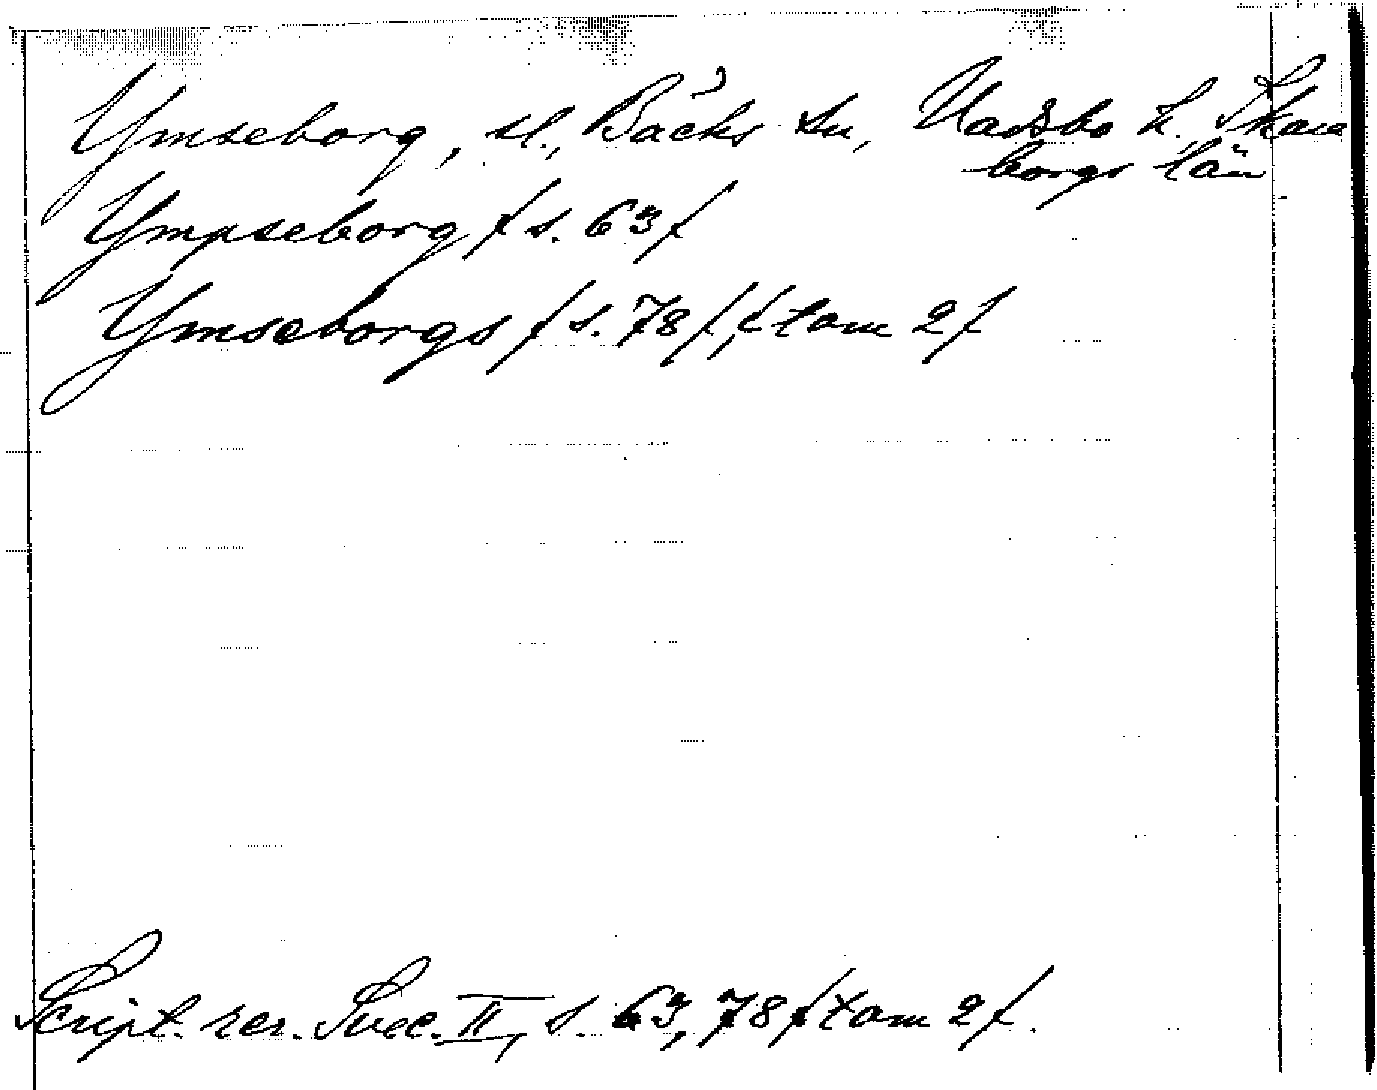 Ymseborg, sl., Bäcks sn, Vadsbo h. Skara
borgs län
Ympseborg /s. 63/
Ymseborgs /s. 78/, /tom 2/
Script. rer. Svec. II, s. 63, 78 /tom 2/.